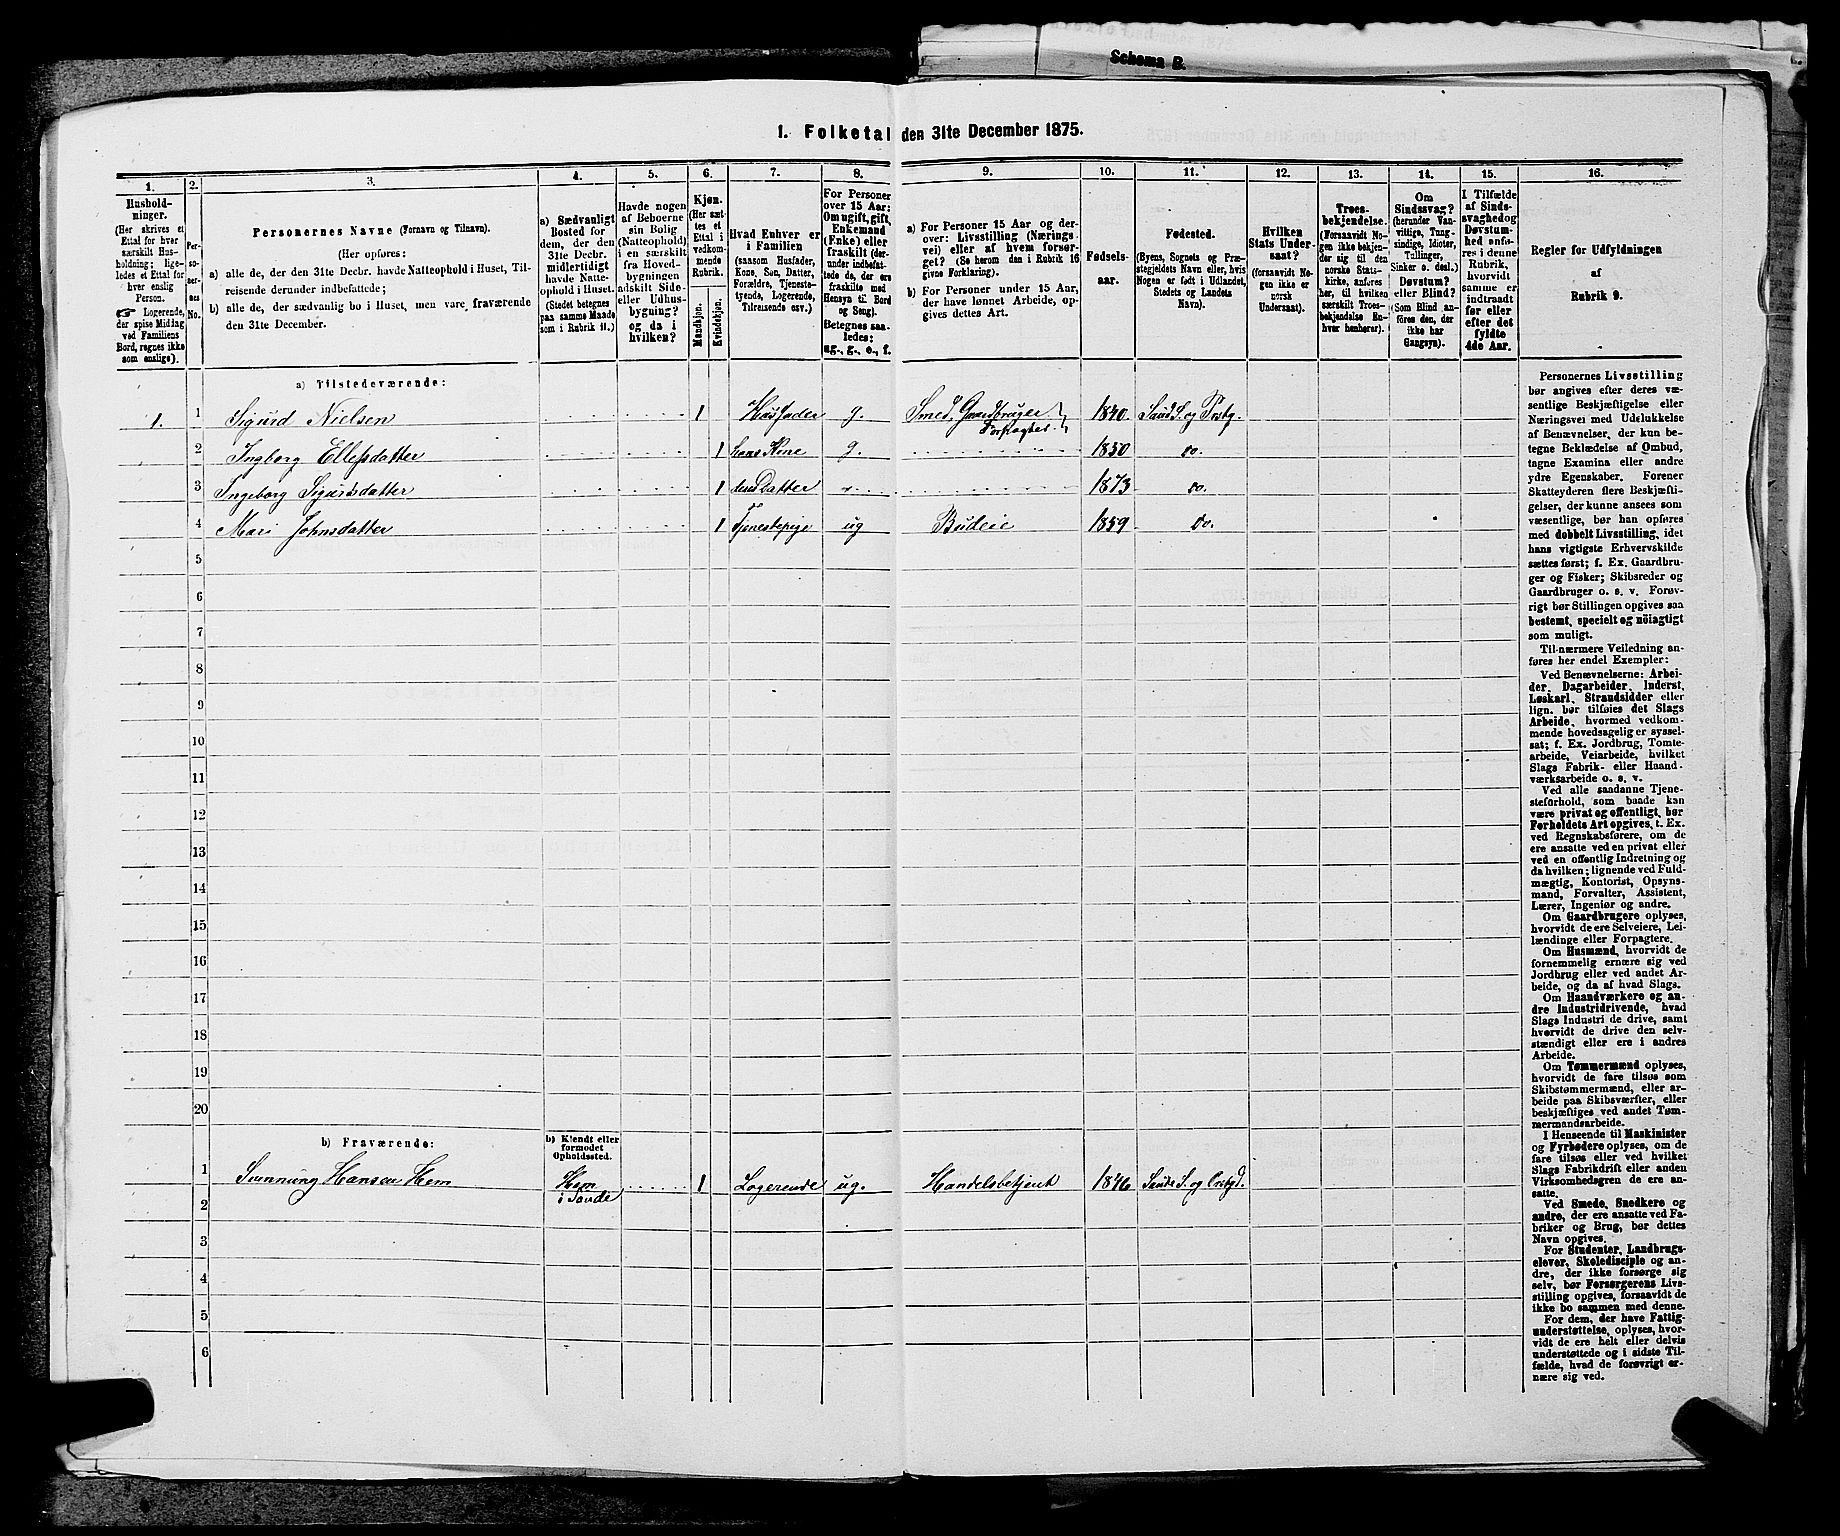 Schema B.
1. Folketal den 31te December 1875.
1.
2.
3.
4.
5.
6.
7.
8.
9.
10.
11.
12.
13.
14.
15.
16.
Husholdninger.
(Her skrives et
Ettal for hver
særskilt Husholdning; ligeledes
et Ettal for
hver enslig
Person.
Logerende,
der spise Middag
ved Familiens
Bord, regnes ikke
som enslige).
Personernes No.
Personernes Navne (Fornavn og Tilnavn).
(Her opføres:
a) alle de, der den 31te Decbr. havde Natteophold i Huset, Tilreisende derunder indbefattede;
b) alle de, der sædvanlig bo i Huset, men vare fraværende
den 31te December.
a) Sædvanligt
Bosted for
dem, der den
31te Decbr.
midlertidigt
havde Natteophold i Huset.
(Stedet betegnes
paa samme Maade
som i Rubrik 11.)
Havde nogen
af Beboerne
sin Bolig
(Natteophold)
i en særskilt
fra Hovedbygningen
adskilt Side-
eller Udhusbygning?
og da i
hvilken?
Kjøn.
(Her sættes
et
Ettal i
vedkommende
Rubrik.
Mandkjøn.
Kvindekjøn.
Hvad Enhver er
i Familien
(saasom Husfader,
Kone, Søn, Datter,
Forældre, Tjenestetyende,
Logerende,
Tilreisende osv.)
For Personer
over 15 Aar:
Om ugift, gift,
Enkemand
(Enke) eller
fraskilt (derunder indbefattede de, der ere
fraskilte med
Hensyn til Bord
og Seng).
Betegnes saaledes:
ug., g., e., f.
a) For Personer 15 Aar og derover: Livsstilling (Næringsvei) eller af hvem forsørget? (Se herom den i Rubrik 16
givne Forklaring).
b) For Personer under 15 Aar,
der have lønnet Arbeide, opgives dettes Art.
Fødselsaar.
Fødested.
(Byens, Sognets og Præstegjeldets Navn eller, hvis
Nogen er født i Udlandet,
Stedets og Landets
Navn).
Hvilken
Stats Undersaat?
(forsaavidt Nogen ikke er
norsk
Undersaat).
Troesbekjendelse.
(Forsaavidt Nogen ikke bekjender sig til den
norske Statskirke, anføres
her, til hvilken
særskilt Troesbekjendelse Enhver henhører).
Om
Sindssvag?
(herunder Vanvittige, Tungsindige, Idioter,
Tullinger,
Sinker o. desl.)
Døvstum?
eller Blind?
(Som Blind anføres den, der
ikke har
Gangsyn).
I Tilfælde
af Sindssvaghed og
Døvstumhed anføres i denne
Rubrik,
hvorvidt
samme er
indtraadt
før eller
efter det
fyldte
4de Aar.
Regler for Udfyldningen
af
Rubrik 9.
a) Tilstedeværende:
1. 1 Sigurd Nielsen 1 Husfader g. Smed, Gaardbruger Forpagter 1840. Saude S. og Prstg.
2 Ingborg Ellefsdatter 1 hans Kone g. 1850 do.
3 Ingeborg Sigursdatter 1 deres Datter 1873 do.
4 Mari Johnsdatter 1 Tjenestepige ug Budeie 1859 Do.
5
6
7
8
9
10
11
12
13
14
15
16
17
18
19
20
b) Fraværende:
b) Kjendt eller
formodet
Opholdssted.
1 Sunnung Hansen Hem Hem i Saude 1 Logerende ug. Handelsbetjent 1846 Saude S. og Prstgd.
2
3
4
5
6
Personernes Livsstilling
bør angives efter deres væsentlige Beskjæftigelse eller
Næringsvei med Udelukkelse
af Benævnelser, der kun betegne Beklædelse af Ombud,
tagne Examina eller andre
ydre Egenskaber. Forener
Skatteyderen flere Beskjæftigelser, der kunne ansees som
væsentlige, bør han opføres
med dobbelt Livsstilling, idet
hans vigtigste Erhvervskilde
sættes først; f. Ex. Gaardbruger og Fisker; Skibsreder og
Gaardbruger o. s. v. Forøvrigt bør Stillingen opgives saa
bestemt, specielt og nöiagtigt
som muligt.
Til nærmere Veiledning anføres her endel Exempler:
Ved Benævnelserne: Arbeider, Dagarbeider, Inderst,
Løskarl, Strandsidder eller
lign. bør tilføies det Slags
Arbeide, hvormed vedkommende hovedsagelig er sysselsat; f. Ex. Jordbrug, Tomtearbeide, Veiarbeide, hvilket
Slags Fabrik- eller Haandværksarbeide o. s. v.
Ved alle saadanne Tjenesteforhold, som baade kan
være privat og offentligt, bør
Forholdets Art opgives, t. Ex.
ved Regnskabsførere, om de
ere ansatte ved en privat eller
ved en offentlig Indretning og
da hvilken; lignende ved Fuldmægtig, Kontorist, Opsynsmand, Forvalter, Assistent,
Lærer, Ingeniør og andre.
Om Gaardbrugere oplyses,
hvorvidt de ere Selveiere, Leilændinge eller Forpagtere.
Om Husmænd, hvorvidt de
fornemmelig ernære sig ved
Jordbrug eller ved andet Arbeide, og da af hvad Slags.
Om Haandværkere og andre Industridrivende, hvad
Slags Industri de drive, samt
hvorvidt de drive den selvstændigt eller ere i andres
Arbeide.
Om Tømmermænd oplyses,
hvorvidt de fare tilsøs som
Skibstømmermænd, eller arbeide paa Skibsværfter, eller
beskjæftiges ved andet Tømmermandsarbeide.
I Henseende til Maskinister
og Fyrbødere oplyses, om de
fare tilsøs eller ved hvilket
Slags Fabrikdrift eller anden
Virksomhedsgren de ere ansatte.
Ved Smede, Snedkere og
andre, der ere ansatte ved Fabriker og Brug, bør dettes
Navn opgives.
For Studenter, Landbrugselever, Skoledisciple og andre, der ikke forsørge sig
selv, bør Forsørgerens Livsstilling opgives, forsaavidt de
ikke bo sammen med denne.
For dem, der have Fattigunderstøttelse, oplyses, hvorvidt de ere helt eller delvis
understøttede og i sidste Tilfælde, hvad de forøvrigt ernære sig ved.